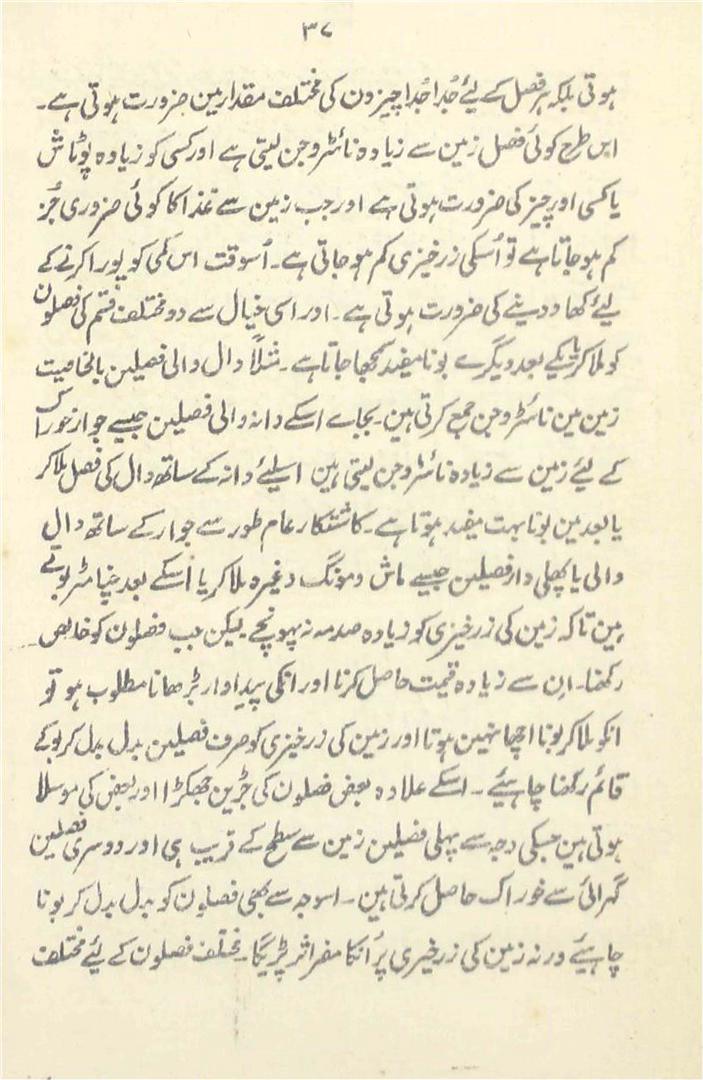 ۳۷
ہوتی بلکہ ہر فصل کے لیئے جُدا جُدا چیزون کی مختلف مقدارین ضرورت ہوتی ہے۔
اس طرح کوئی فصل زمین سے زیادہ نائٹروجن لیتی ہے اور کسی کو زیادہ پوٹاش
یا کسی اور چیز کی ضرورت ہوتی ہے اور جب زمین سے غذا کا کوئی ضروری جُز
کم ہو جاتا ہے تو اُسکی زرخیزی کم ہو جاتی ہے۔ اُسوقت اس کمی کو پورا کرنے کے
لیئے کھاد دینے کی ضرورت ہوتی ہے۔ اور اسی خیال سے دو مختلف قسم کی فصلون
کو ملا کر یا یکے بعد دیگرے بونا مفید سمجھا جاتا ہے۔ مثلاً دال والی فصیلین بالخاصیت
زمین مین نائٹروجن جمع کرتی ہین۔ بجاے اسکے دانہ والی فصیلین جیسے جوار خوراک
کے لیئے زمین سے زیادہ نائٹروجن لیتی ہین اسلیئے دانہ کے ساتھ دال کی فصل ملا کر
یا بعد مین بونا بہت مفید ہوتا ہے۔ کاشتکار عام طور سے جوار کے ساتھ دال
والی یا پھلی دار فصیلین جیسے ماش و مونگ وغیرہ ملا کر یا اُسکے بعد چنا مٹر بوتے
ہین تاکہ زمین کی زرخیزی کو زیادہ صدمہ نہ پہونچے لیکن جب فصلون کو خالص
رکھنا۔ ان سے زیادہ قیمت حاصل کرنا اور انکی پیداوار بڑھانا مطلوب ہو تو
انکو ملا کر بونا اچھا نہین ہوتا اور زمین کی زرخیزی کو صرف فصیلین بدل بدل کر بو کے
قائم رکھنا چاہیئے۔ اسکے علاوہ بعض فصلون کی جڑین جھکڑا اور بعض کی موسلا
ہوتی ہین جسکی وجہ سے پہلی فصیلین زمین سے سطح کے قریب ہی اور دوسری فصلین
گہرائی سے خوراک حاصل کرتی ہین۔ اسوجہ سے بھی فصلون کو بدل بدل کر بونا
چاہیئے ورنہ زمین کی زرخیزی پر اُنکا مضر اثر پڑیگا۔ مختلف فصلون کے لیئے مختلف